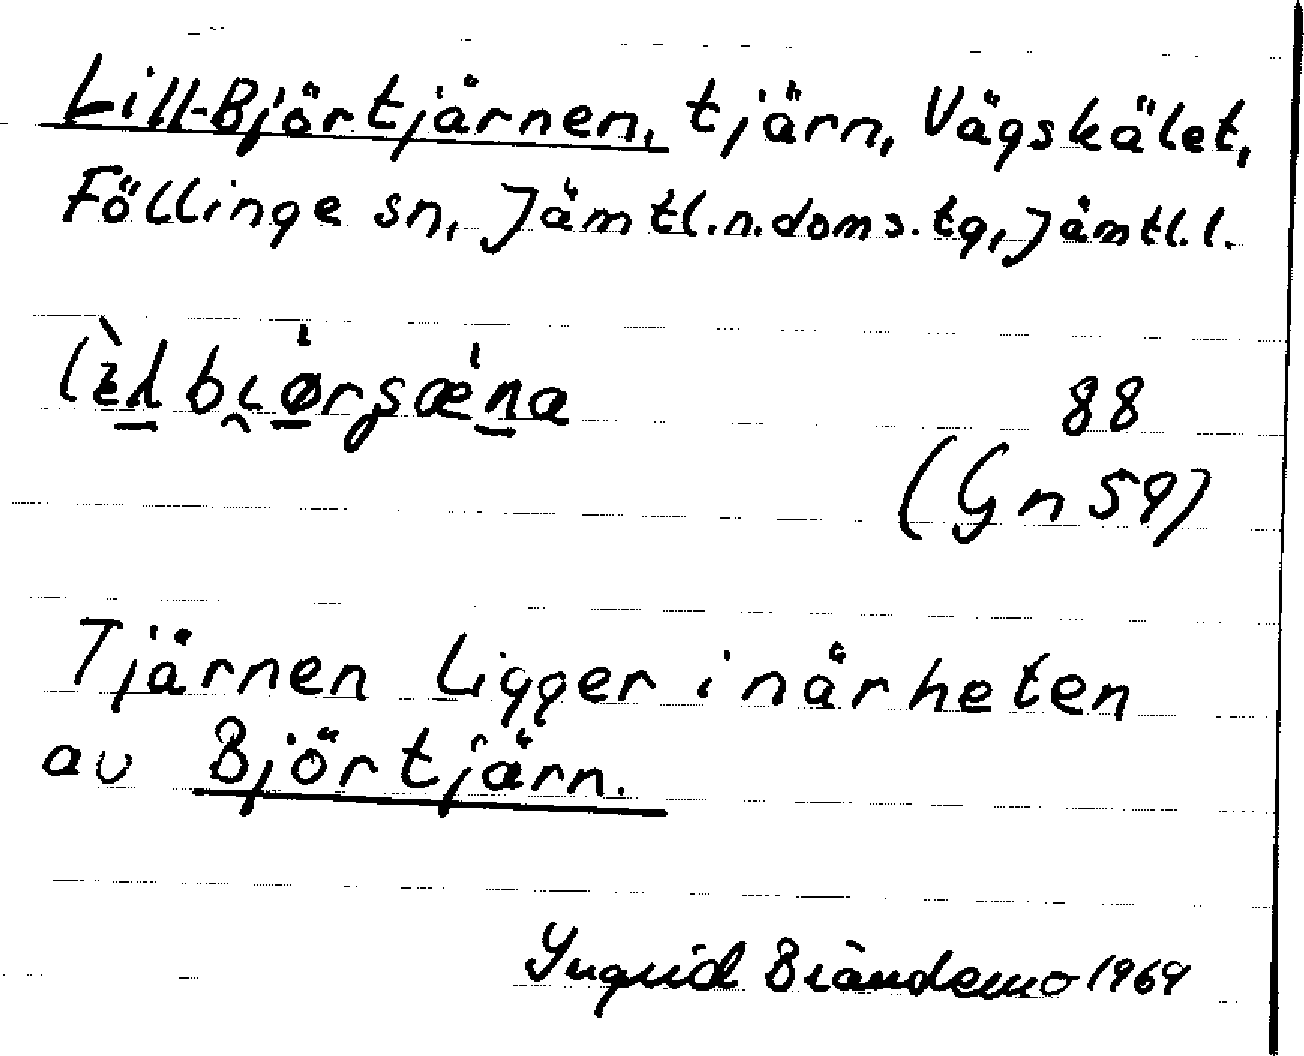 Lill-Björtjärnen, tjärn, Vågskälet,
Föllinge sn, Jämtl.n.doms.tg, Jämtl.l.
88
(Gn 59)
Tjärnen ligger i närheten
av Björtjärn.
Ingrid Brändemo 1969